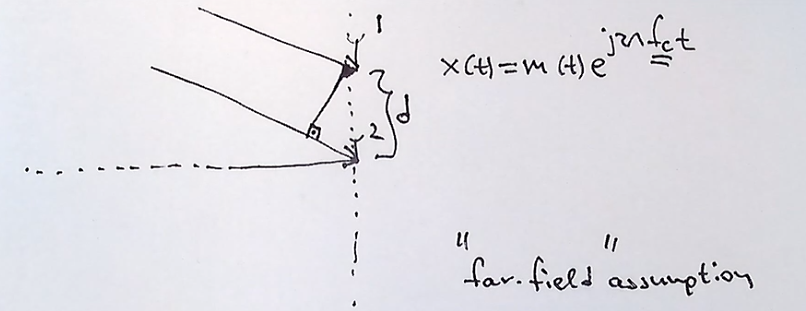 1
x(t) = m(t) e^{j2πf_c t}
d
2
"far-field" assumption